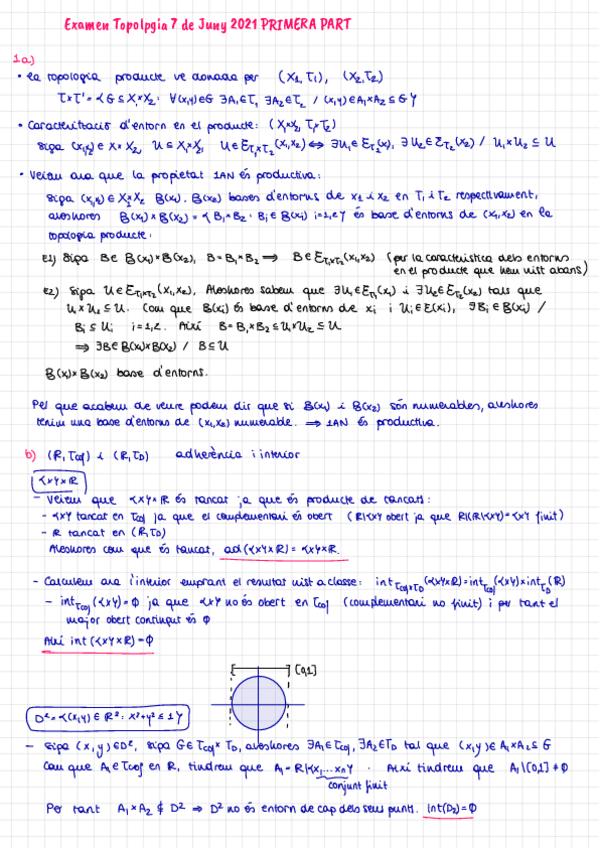 Examen Topolpgia 7 de Juny 2021 PRIMERA PART
1a)
• La topologia producte ve donada per (X₁, T₁), (X₂, T₂)
T×T' = {G ⊆ X₁×X₂ : ∀(x,y)∈G ∃A₁∈T₁ ∃A₂∈T₂ / (x,y)∈A₁×A₂ ⊆ G}
• Caracterització d'entorn en el producte: (X₁×X₂, T₁×T₂)
Sipa (x₁,x₂) ∈ X₁×X₂, U ⊆ X₁×X₂, U∈ε_T₁×T₂(x₁,x₂) ⟺ ∃U₁∈ε_T₁(x₁), ∃U₂∈ε_T₂(x₂) / U₁×U₂ ⊆ U
• Veiem ara que la propietat 1AN és productiva:
Sipa (x₁,x₂)∈X₁×X₂ B(x₁), B(x₂) bases d'entorns de x₁ i x₂ en T₁ i T₂ respectivament,
aleshores B(x₁)×B(x₂) = {B₁×B₂ : Bi∈B(xi) i=1,2} és base d'entorns de (x₁,x₂) en la
topologia producte:
E1) Sipa B∈B(x₁)×B(x₂), B=B₁×B₂ ⟹ B∈ε_T₁×T₂(x₁,x₂) (per la característica dels entorns
en el producte que hem vist abans)
E2) Sipa U∈ε_T₁×T₂(x₁,x₂), Aleshores sabem que ∃U₁∈ε_T₁(x₁) i ∃U₂∈ε_T₂(x₂) tals que
U₁×U₂ ⊆ U. Com que B(xi) és base d'entorns de xi i Ui∈ε(xi), ∃Bi∈B(xi) /
Bi ⊆ Ui i=1,2. Així B=B₁×B₂ ⊆ U₁×U₂ ⊆ U
⟹ ∃B∈B(x₁)×B(x₂) / B⊆U
B(x₁)×B(x₂) base d'entorns.
Pel que acabem de veure podem dir que si B(x₁) i B(x₂) són numerables, aleshores
tenim una base d'entorns de (x₁,x₂) numerable. ⟹ 1AN és productiva.
b) (R, Tcof) i (R, T_D) adherència i interior
{x}×R
- Veiem que {x}×R és tancat ja que és producte de tancats:
- {x} tancat en Tcof ja que el complementari és obert (R\{x} obert ja que R\(R\{x})={x} finit)
- R tancat en (R,T_D)
Aleshores com que és tancat, ad({x}×R) = {x}×R.
- Calculem ara l'interior emprant el resultat vist a classe: int_Tcof×T_D({x}×R)=int_Tcof({x})×int_T_D(R)
- int_Tcof({x})=∅ ja que {x} no és obert en Tcof (complementari no finit) i per tant el
major obert contingut és ∅
Així int({x}×R)=∅
[0,1]
D²={(x,y)∈R²: x²+y²≤1}
- Sipa (x,y)∈D², sipa G∈Tcof×T_D, aleshores ∃A₁∈Tcof, ∃A₂∈T_D tal que (x,y)∈A₁×A₂⊆G
Com que A₁∈Tcof en R, tindrem que A₁=R\{x₁...xn}. Així tindrem que A₁\[0,1]≠∅
conjunt finit
Per tant A₁×A₂ ⊄ D² ⟹ D² no és entorn de cap dels seus punts. Int(D₂)=∅